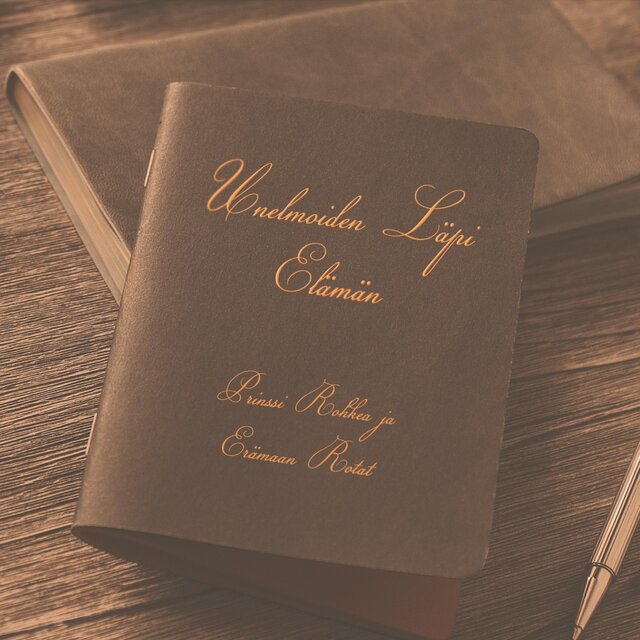 Unelmoiden Läpi
Elämän
Prinssi Rohkea ja
Erämaan Rotat